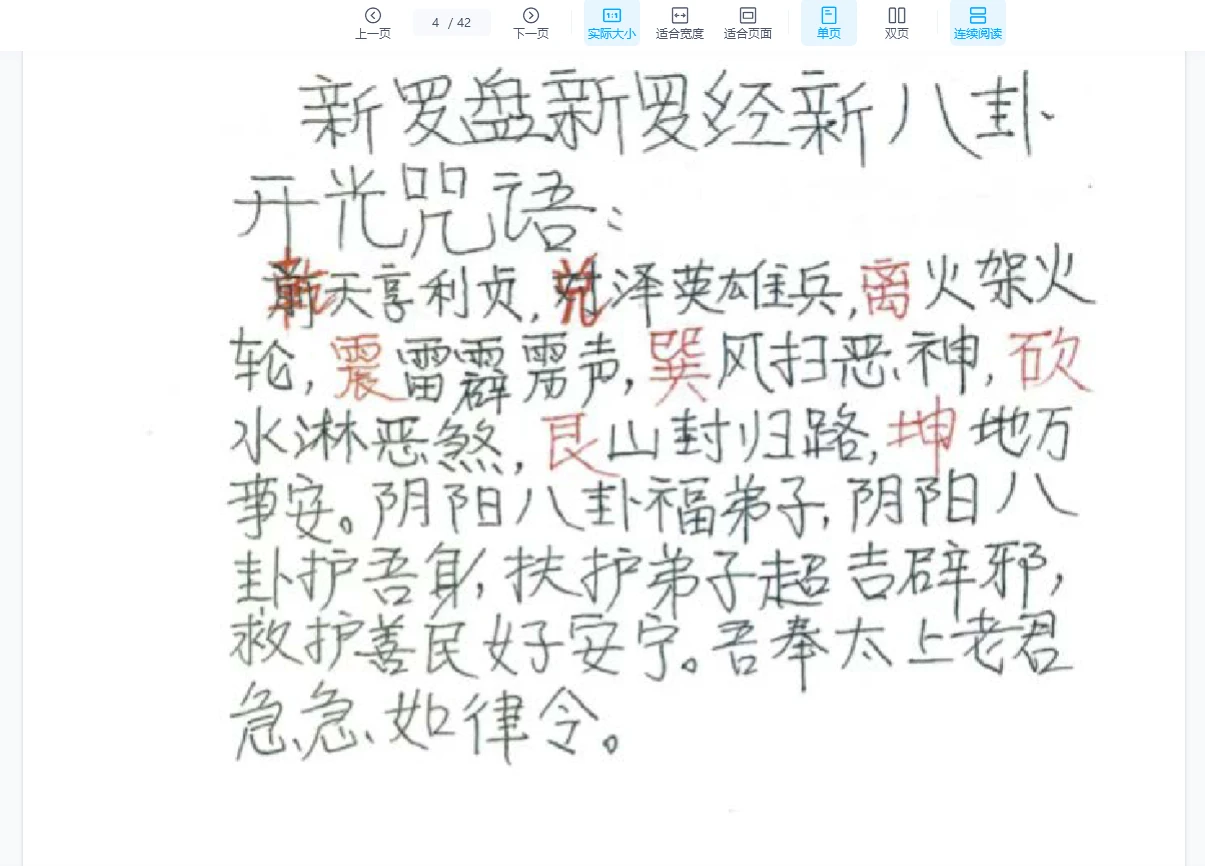 上一页 4 / 42 下一页 1:1 实际大小 适合宽度 适合页面 单页 双页 连续阅读
新罗盘新罗经新八卦
开光咒语:
乾天享利贞,兑泽英雄兵,离火架火
轮,震雷霹雳声,巽风扫恶神,砍
水淋恶煞,艮山封归路,坤地万
事安。阴阳八卦福弟子,阴阳八
卦护吾身,扶护弟子超吉辟邪,
救护善民好安宁。吾奉太上老君
急急如律令。